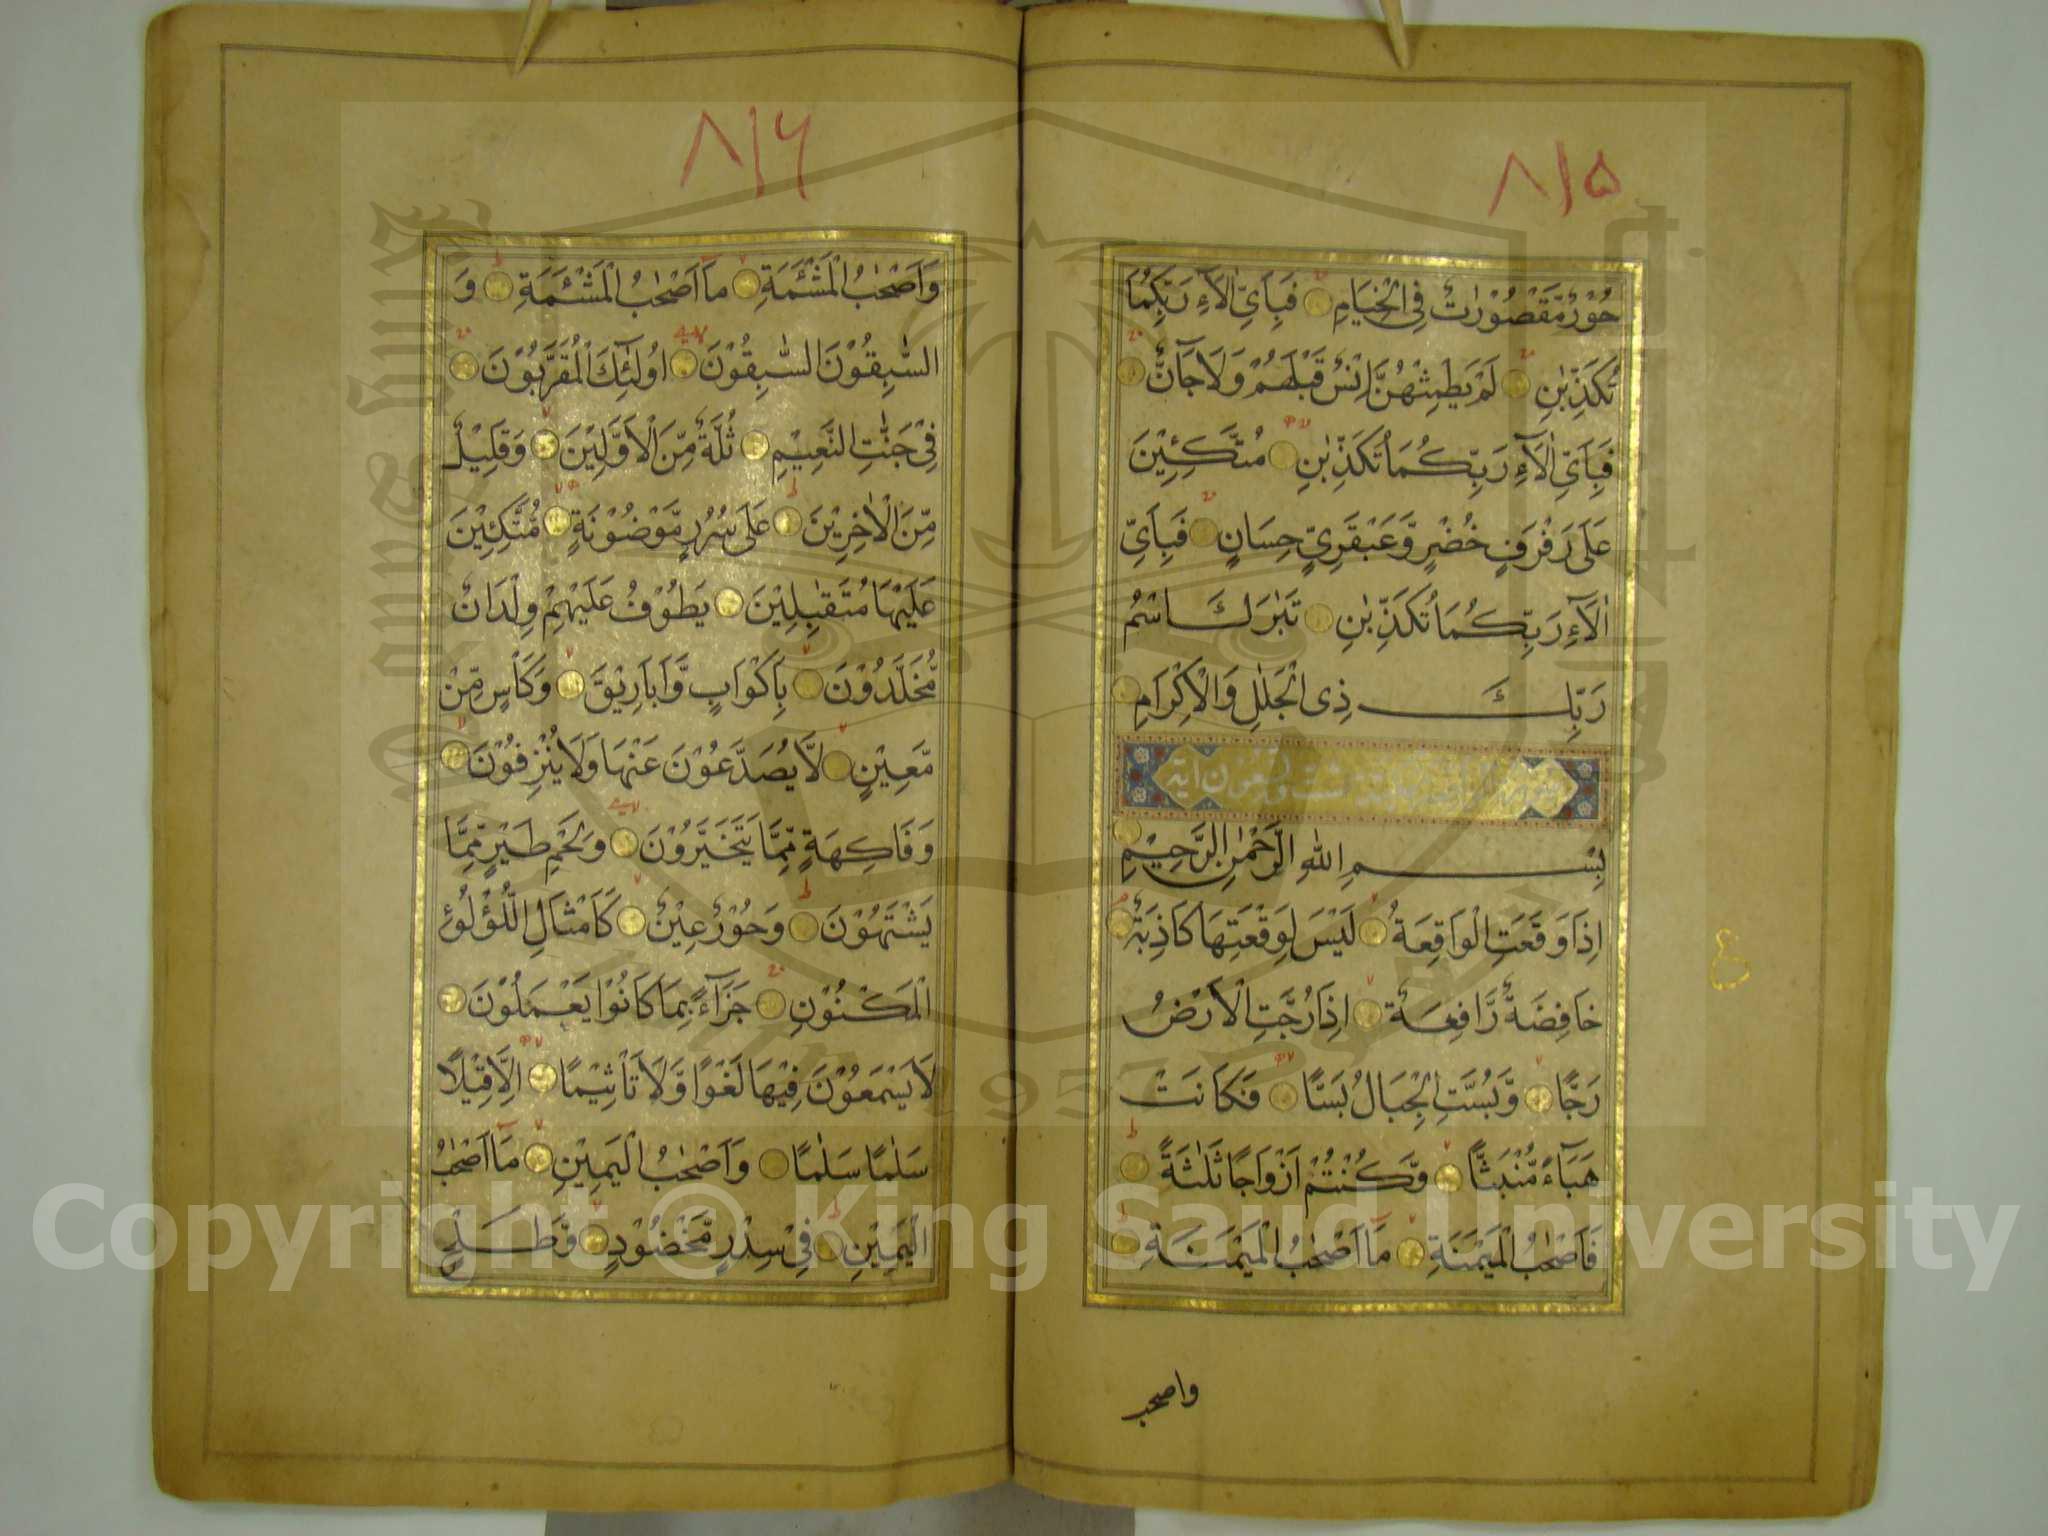 ٨١٥
حُوْرٌ مَّقْصُوْرٰتٌ فِی الْخِيَامِ فَبِاَیِّ اٰلَآءِ رَبِّكُمَا
تُكَذِّبٰنِ لَمْ يَطْمِثْهُنَّ اِنْسٌ قَبْلَهُمْ وَلَا جَآنٌّ
فَبِاَیِّ اٰلَآءِ رَبِّكُمَا تُكَذِّبٰنِ مُتَّكِئِيْنَ
عَلٰی رَفْرَفٍ خُضْرٍ وَّعَبْقَرِیٍّ حِسَانٍ فَبِاَیِّ
اٰلَآءِ رَبِّكُمَا تُكَذِّبٰنِ تَبٰرَكَ اسْمُ
رَبِّكَ ذِی الْجَلٰلِ وَالْاِكْرَامِ
وتسعون اية
بِسْمِ اللهِ الرَّحْمٰنِ الرَّحِيْمِ
اِذَا وَقَعَتِ الْوَاقِعَةُ لَيْسَ لِوَقْعَتِهَا كَاذِبَةٌ
خَافِضَةٌ رَّافِعَةٌ اِذَا رُجَّتِ الْاَرْضُ
رَجًّا وَّبُسَّتِ الْجِبَالُ بَسًّا فَكَانَتْ
هَبَآءً مُّنْبَثًّا وَّكُنْتُمْ اَزْوَاجًا ثَلٰثَةً
فَاَصْحٰبُ الْمَيْمَنَةِ مَآ اَصْحٰبُ الْمَيْمَنَةِ
واصحب
ع
٨١٦
وَاَصْحٰبُ الْمَشْئَمَةِ مَآ اَصْحٰبُ الْمَشْئَمَةِ وَ
السّٰبِقُوْنَ السّٰبِقُوْنَ اُولٰٓئِكَ الْمُقَرَّبُوْنَ
فِیْ جَنّٰتِ النَّعِيْمِ ثُلَّةٌ مِّنَ الْاَوَّلِيْنَ وَقَلِيْلٌ
مِّنَ الْاٰخِرِيْنَ عَلٰی سُرُرٍ مَّوْضُوْنَةٍ مُّتَّكِئِيْنَ
عَلَيْهَا مُتَقٰبِلِيْنَ يَطُوْفُ عَلَيْهِمْ وِلْدَانٌ
مُّخَلَّدُوْنَ بِاَكْوَابٍ وَّاَبَارِيْقَ وَكَاْسٍ مِّنْ
مَّعِيْنٍ لَّا يُصَدَّعُوْنَ عَنْهَا وَلَا يُنْزِفُوْنَ
وَفَاكِهَةٍ مِّمَّا يَتَخَيَّرُوْنَ وَلَحْمِ طَيْرٍ مِّمَّا
يَشْتَهُوْنَ وَحُوْرٌ عِيْنٌ كَاَمْثَالِ اللُّؤْلُؤِ
الْمَكْنُوْنِ جَزَآءً بِمَا كَانُوْا يَعْمَلُوْنَ
لَا يَسْمَعُوْنَ فِيْهَا لَغْوًا وَّلَا تَاْثِيْمًا اِلَّا قِيْلًا
سَلٰمًا سَلٰمًا وَاَصْحٰبُ الْيَمِيْنِ مَآ اَصْحٰبُ
الْيَمِيْنِ فِیْ سِدْرٍ مَّخْضُوْدٍ وَّطَلْحٍ
Copyright © King Saud University
1957